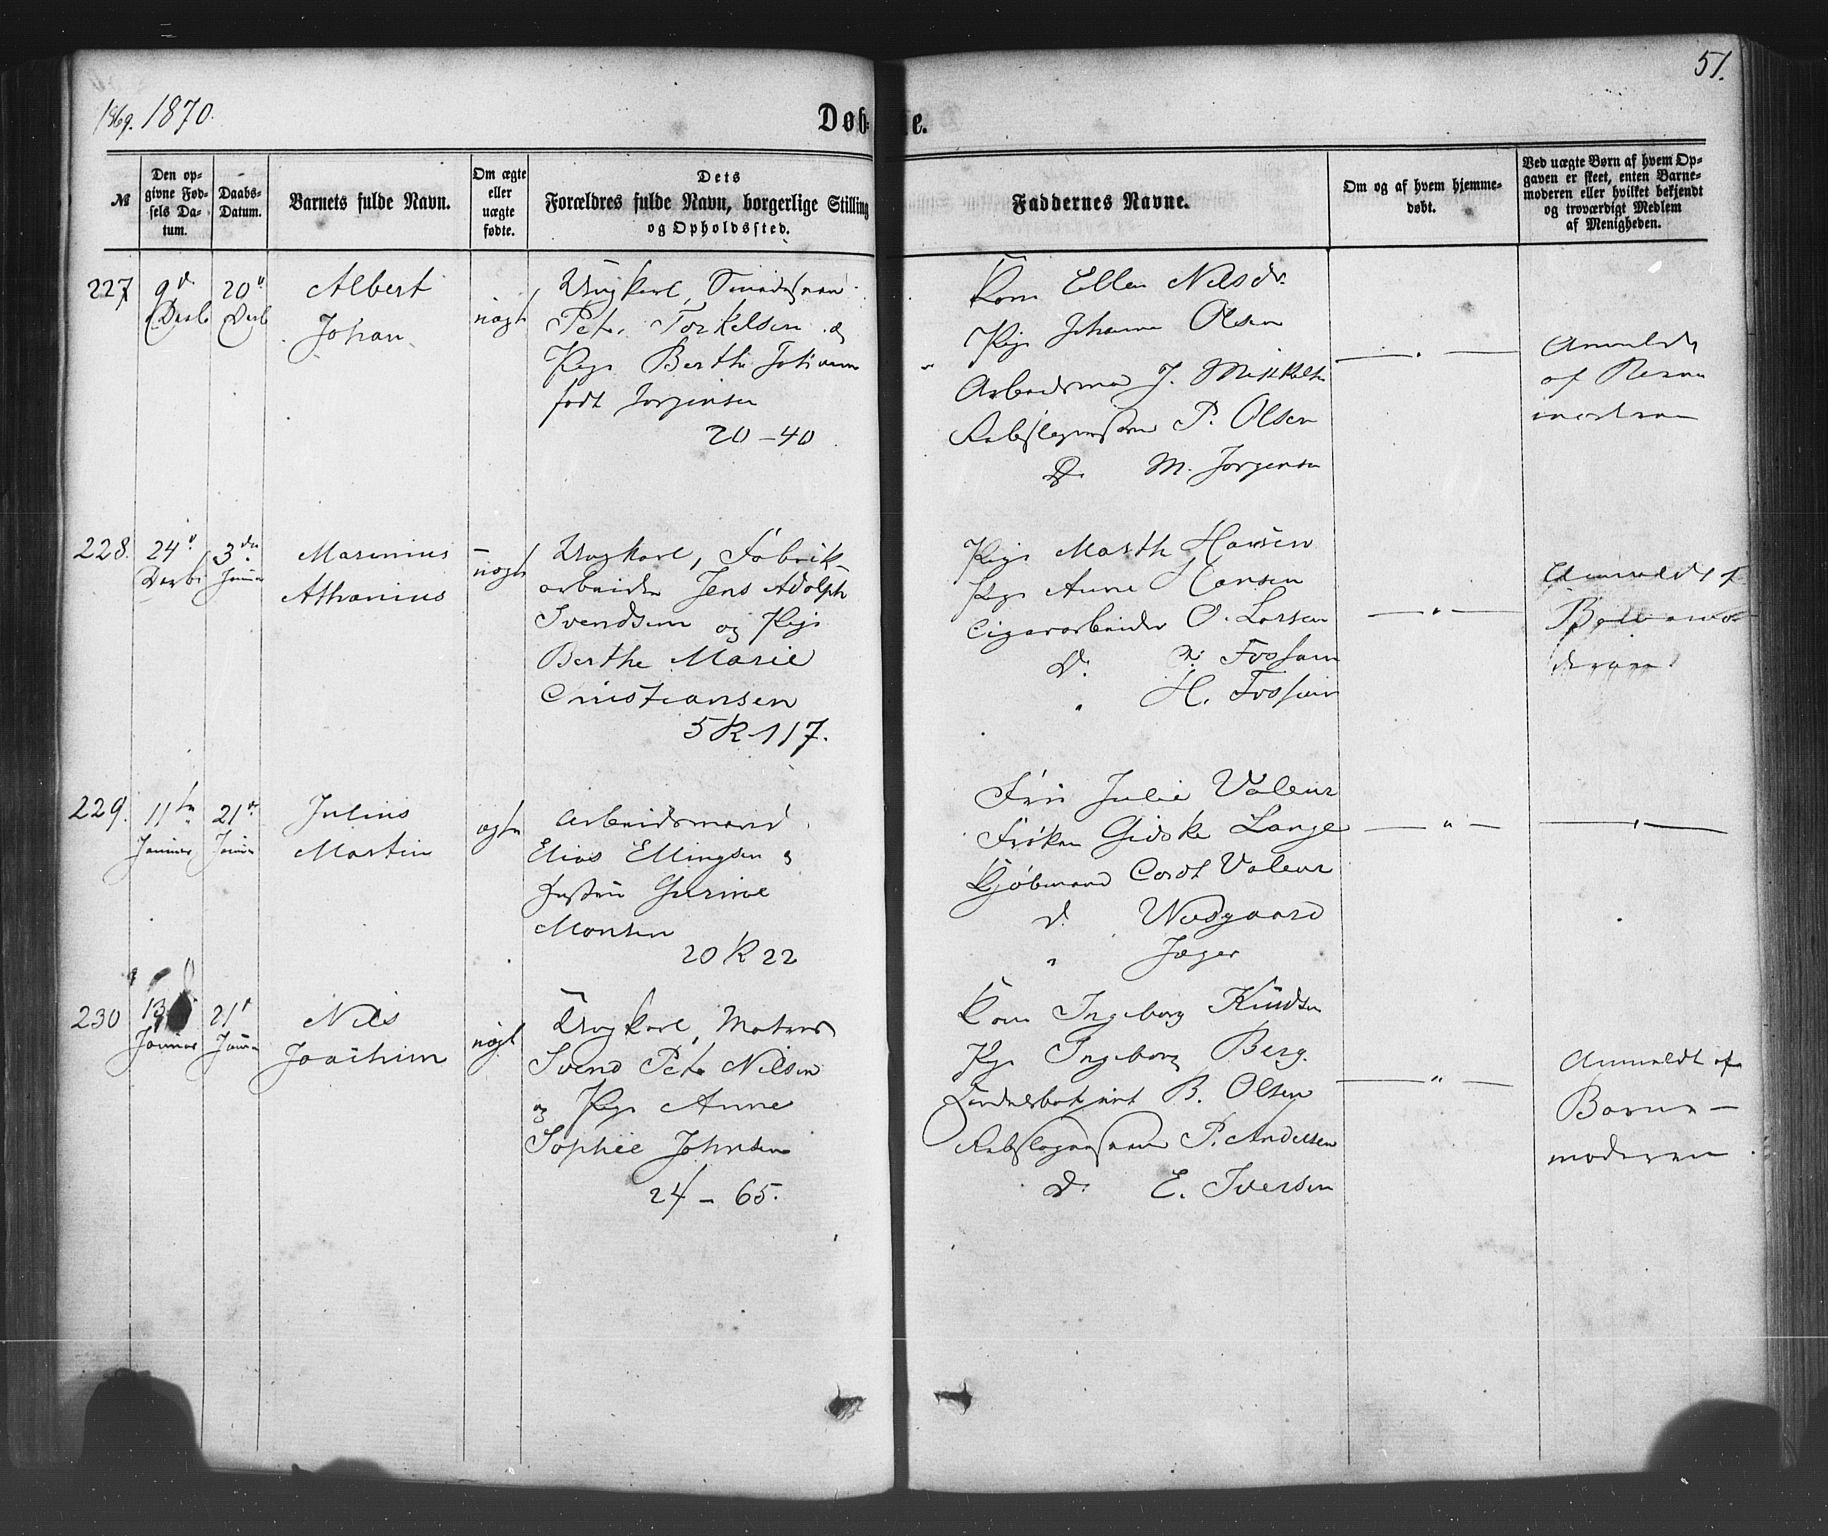 1869. 1870.
Døb- te.
51.
№
Den op-
givne Fød-
sels Da-
tum.
Daabs-
Datum.
Barnets fulde Navn.
Om ægte
eller
uægte
fødte.
Dets
Forældres fulde Navn, borgerlige Stilling
og Opholdssted.
Faddernes Navne.
Om og af hvem hjemme-
døbt.
Ved uægte Børn af hvem Op-
gaven er skeet, enten Barne-
moderen eller hvilket bekjendt
og troværdigt Medlem
af Menigheden.
227
9d
Decb
20d
Decb
Albert
Johan
uægt
Ungkarl,
Peter Torkelsen og
Pige Berthe Johanne
født Jørgensen
20-40
Kone Ellen Nilsdr
Pige Johanne Olsen
Arbeidsmand J. Mikkelsen
Rebslagersvend P. Olsen
Do M. Jørgensen
Anmeldt
af Barne
moderen
228.
24d
Decbr
3die
Januar
Marinius
Athanius
uægte
Ungkarl, Fabrik-
arbeider Jens Adolph
Svendsen og Pige
Berthe Marie
Cristiansen
5 R 117.
Pige Marthe Hansen
Pige Anne Hansen
Cigararbeider O. Larsen
Do. Fossum
" H. Fossum
Anmeldt af
Barnemo-
deren
229.
11te
Januar
21de
Januar
Julius
Martin
ægte
Arbeidsmand
Elias Ellingsen og
Hustru Gurine
Monsen
20 R 22
Fru Julie Valeur
Frøken Gidske Lange
Kjøbmand Cordt Valeur
do. Wesgaard
" Jæger
230
13
Januar
21d
Januar
Nils
Joachim
uægt
Ungkarl, Matros
Svend Peter Nilsen
og Pige Anne
Sophie Johnsen
24 - 65.
Kone Ingeborg Knudsen
Pige Ingeborg Berg.
B. Olsen
Rebslagersvend P. Andersen
do. E. Iversen
Anmeldt af
Barne-
moderen.